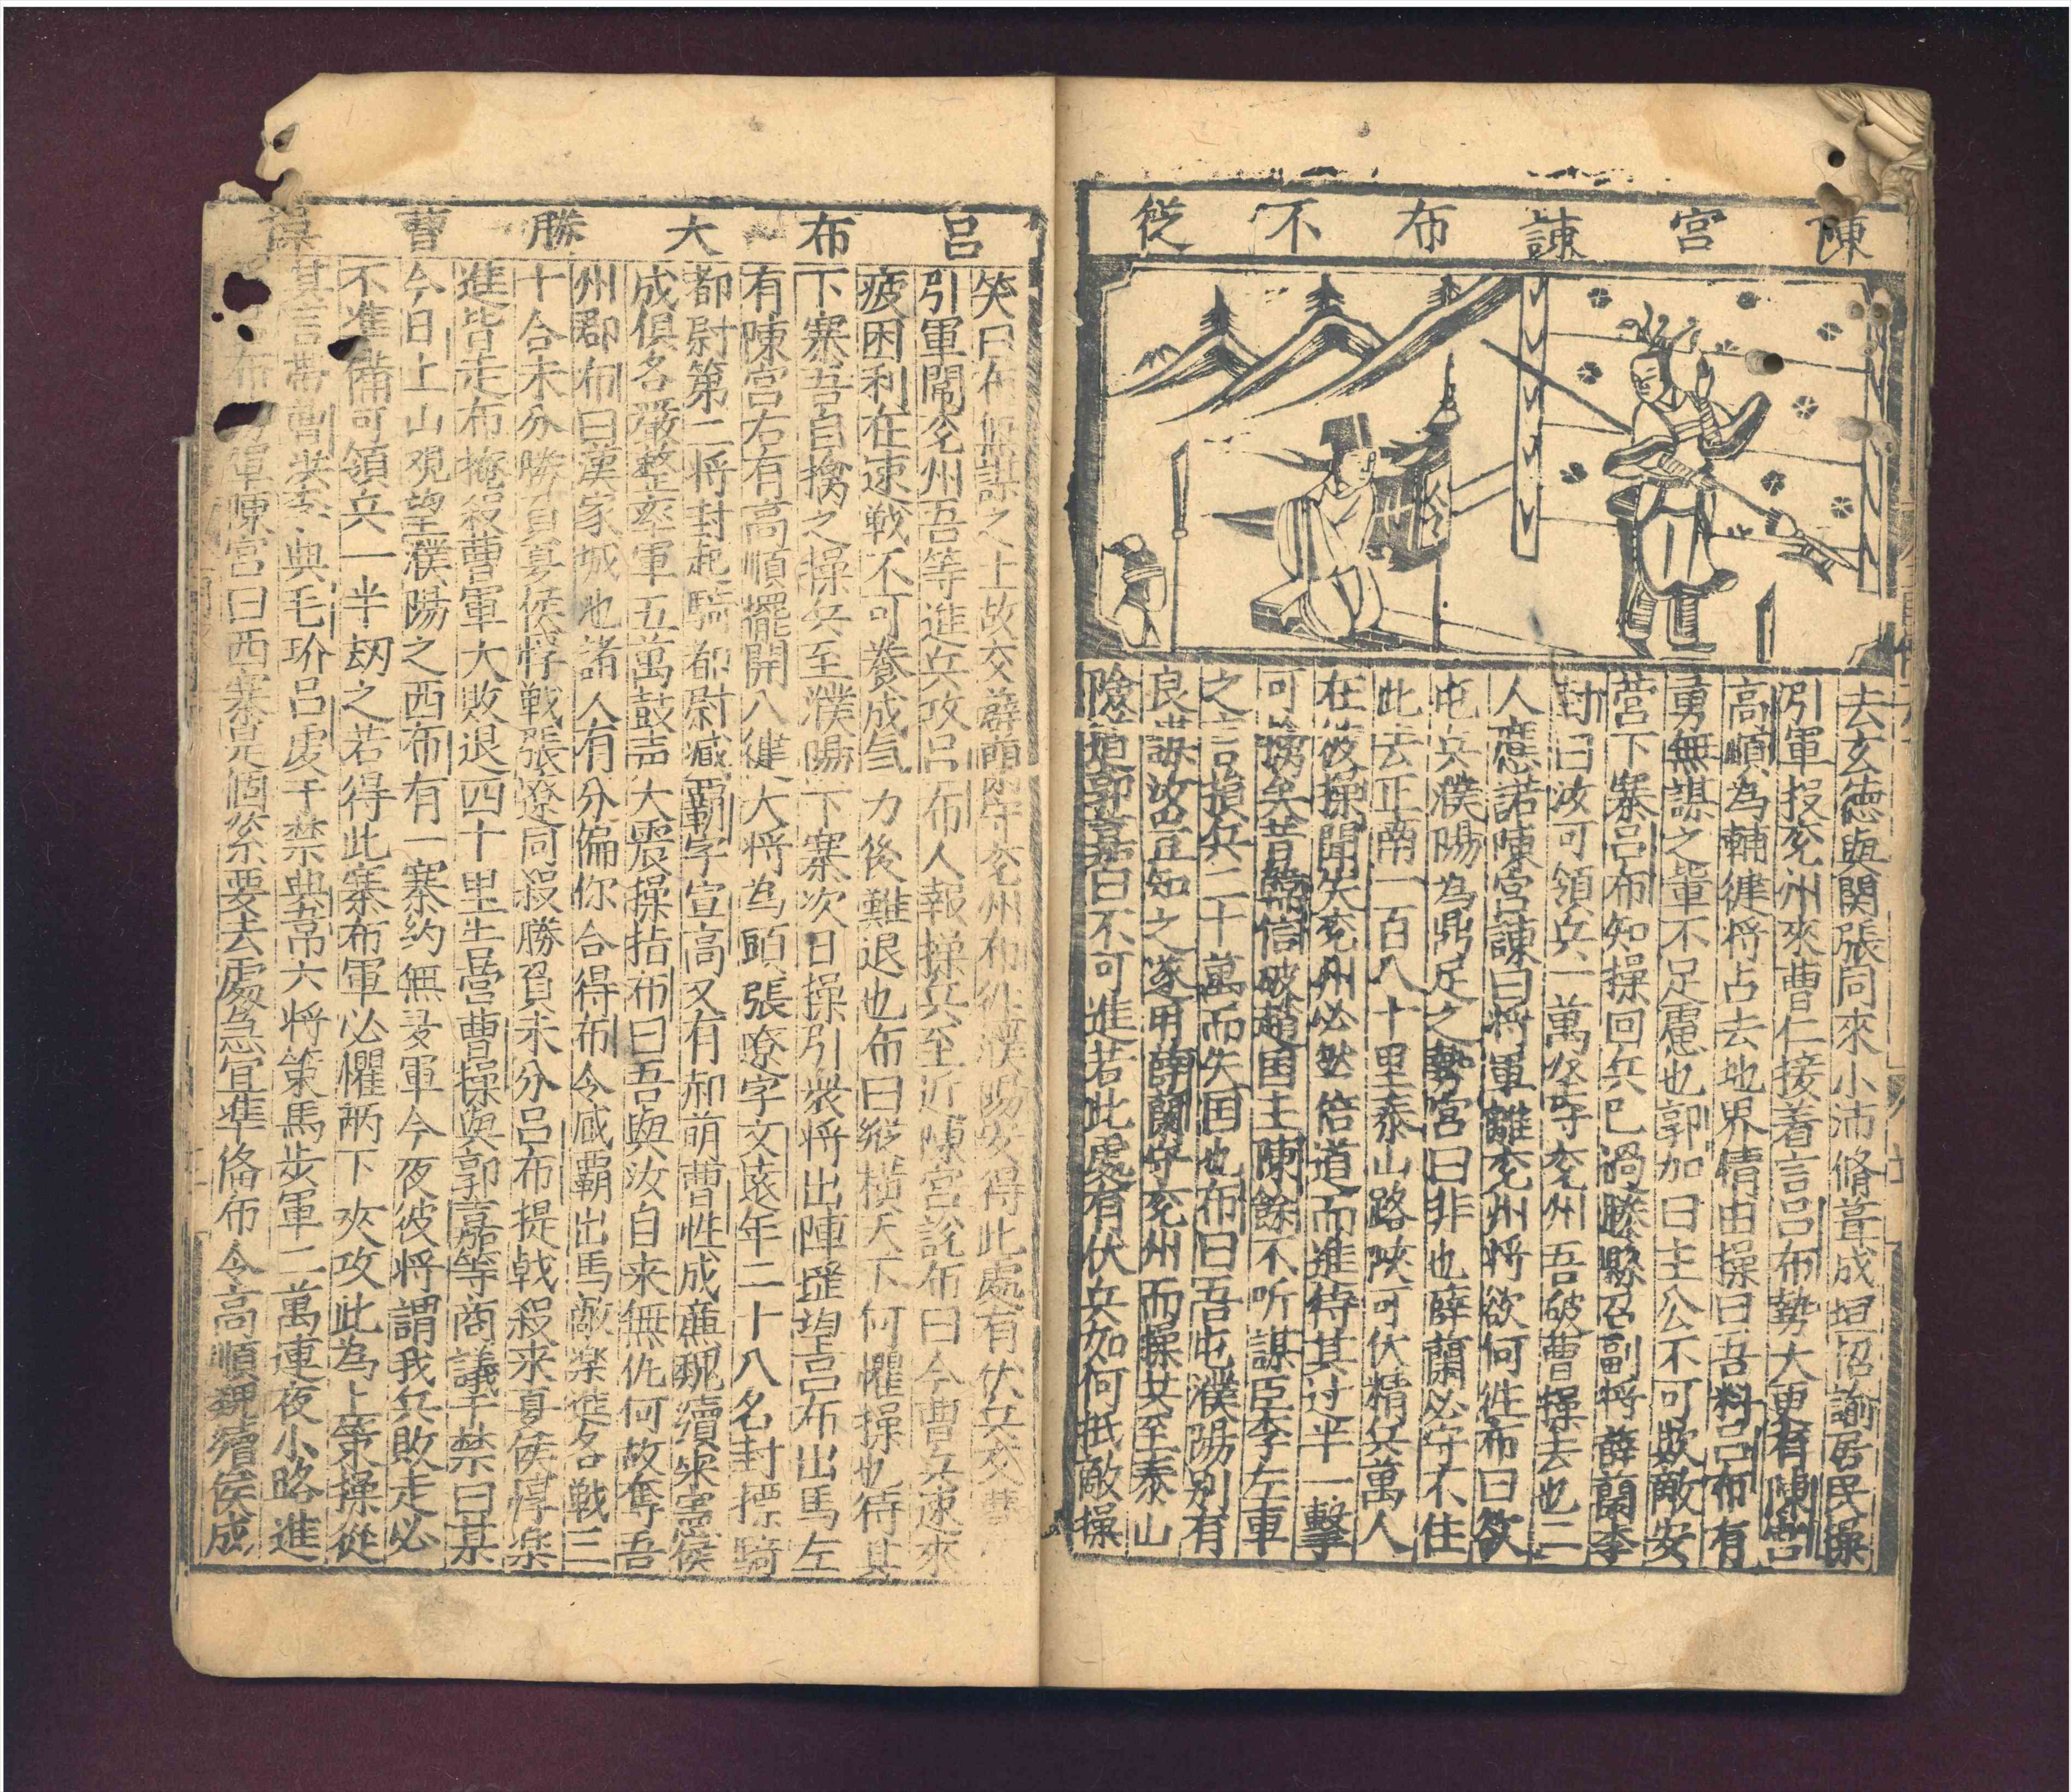 陳宮諫布不從
去玄德與関張同來小沛脩葺成垣招諭居民操
引軍投兖州來曹仁接着言呂布勢大更有陳宮
高順為輔徤将占去地界情由操曰吾料呂布有
勇無謀之輩不足慮也郭加曰主公不可欺敵安
营下寨呂布知操回兵已過滕縣召副将薛蘭李
封曰汝可領兵一萬坚守兖州吾破曹操去也二
人應諾陳宮諫曰将軍離兖州将欲何徃布曰欲
屯兵濮陽為鼎足之勢宮曰非也薛蘭必守不住
此去正南一百八十里泰山路陜可伏精兵萬人
在彼操聞失兖州必然倍道而進待其过半一擊
可擒矣昔韓信破趙国主陳餘不听謀臣李左車
之言損兵二十萬而失国也布曰吾屯濮陽别有
良謀汝豈知之遂用薛蘭守兖州而操兵至泰山
險道郭嘉曰不可進若此處有伏兵如何抵敵操
呂布大勝曹操
笑曰布無謀之上故交薛蘭守兖州布徃濮陽安得此處有伏兵交
引軍閙兖州吾等進兵攻呂布人報操兵至近陳宮說布曰今曹兵速來
疲困利在速戦不可養成气力後難退也布曰縱横天下何懼操也待其
下寨吾自擒之操兵至濮陽下寨次日操引衆将出陣遥望呂布出馬左
有陳宮右有高順擺開八徤大将為頭張遼字文遠年二十八名封摽騎
都尉第二将封起騎都尉臧覇字宣高又有郝萌曹性成廉魏續宋憲侯
成俱名嚴整率軍五萬鼓声大震操指布曰吾與汝自来無仇何故奪吾
州郡布曰漢家城池諸人有分偏你合得布令臧覇出馬敵楽進各戦三
十合未分勝負夏侯惇戦張遼同殺勝負未分呂布提戟殺来夏侯惇楽
進皆走布掩殺曹軍大敗退四十里生营曹操與郭嘉等商議于禁曰某
今日上山覌望濮陽之西布有一寨約無多軍今夜彼将謂我兵敗走必
不準備可領兵一半刼之若得此寨布軍必懼兩下夾攻此為上策操從
其言帯曹洪李典毛玠呂虔于禁典韋六将策馬步軍二萬連夜小路進
布勞軍陳宮曰西寨是個紧要去處急宜準俻布令高順魏續侯成